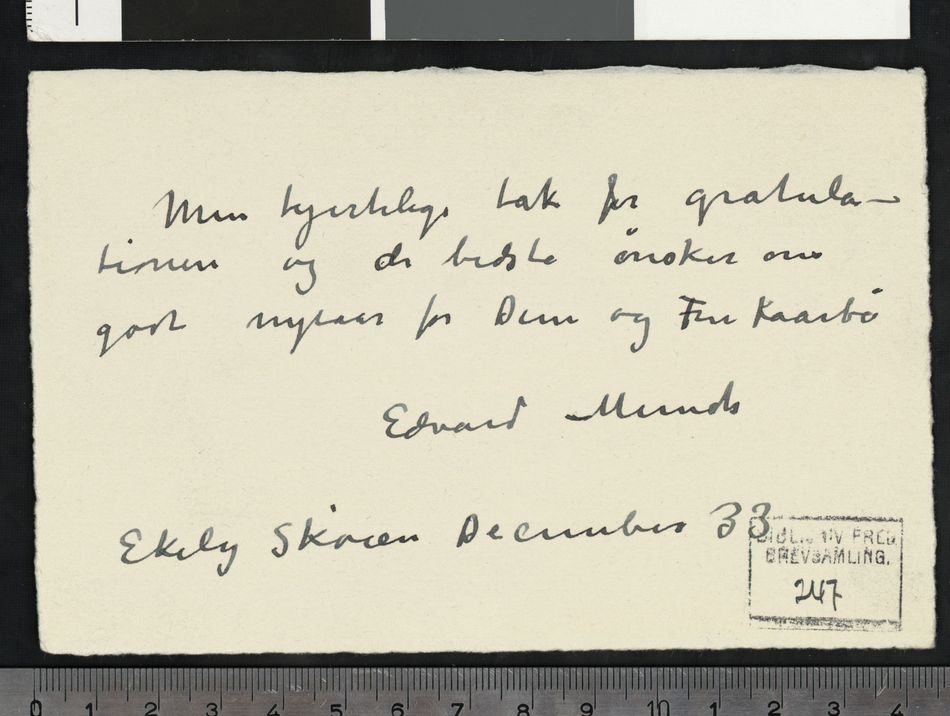 Min hjertelige tak for gratula-
tionen og de bedste ønsker om
godt nytaar for Dem og Fru Kaarbø
Edvard Munch
Ekely Skøien December 33
UNIV BREV
BREVSAMLING.
247